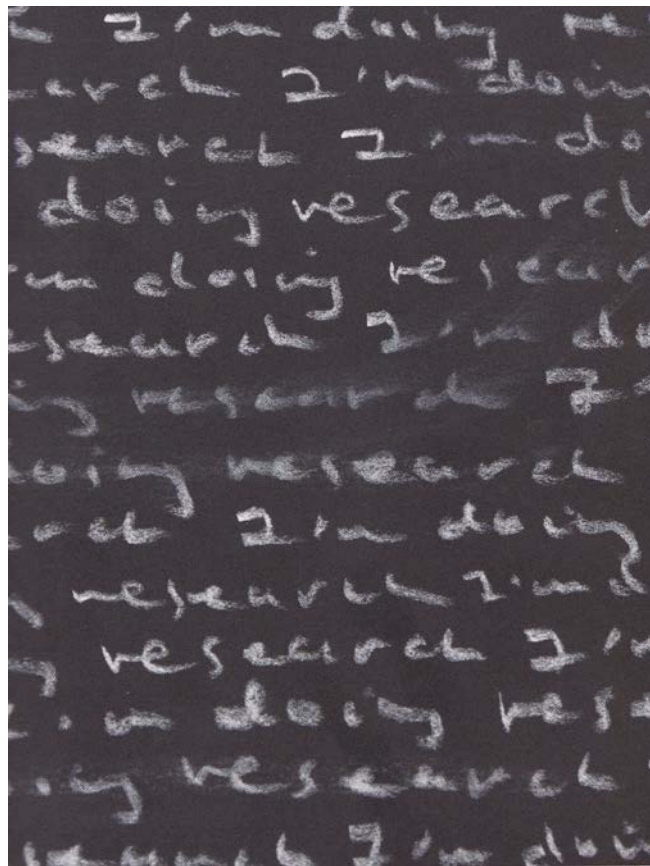 I'm doing re
earch I'm doin
search I'm do
doing research
m doing resear
search I'm do
ing research I
oing research
arch I'm doing
research I'm d
research I'm
I'm doing rese
ing research
search I'm doin